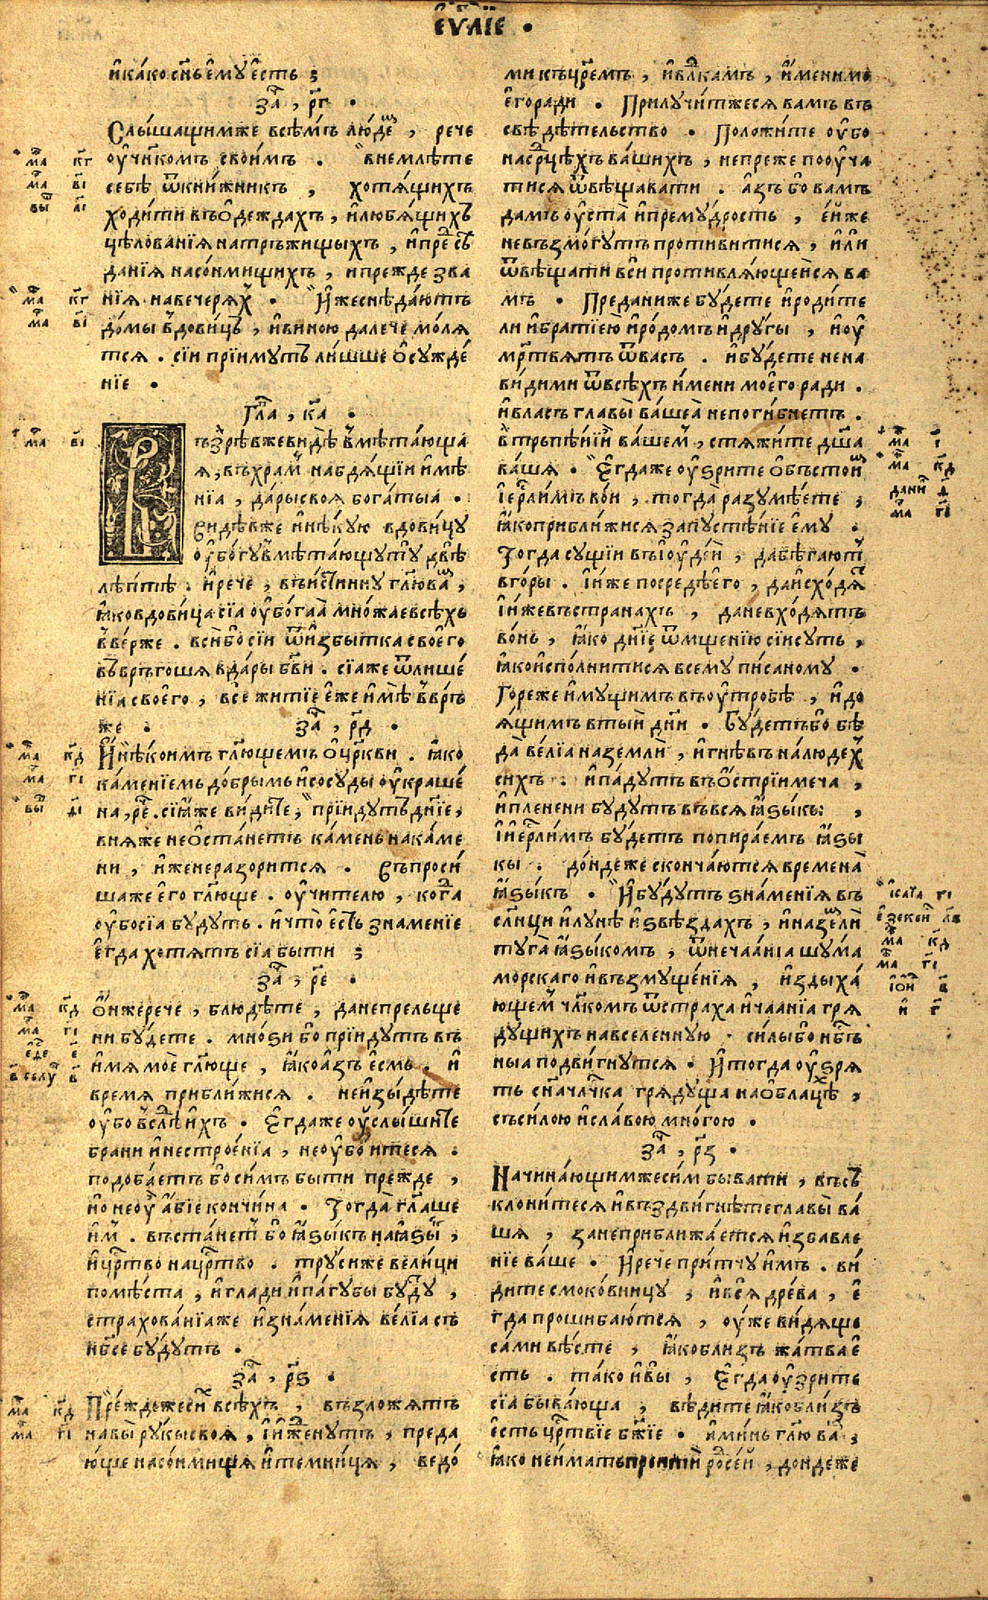 еѵⷢ҇лїе ·
и҆ка́ко сн҃ъ є҆мꙋ̀ є҆́сть ;
заⷱ҇ , р҃г ·
Слы́шащимже всѣ́мъ лю́деⷨ , рече
ѹ҆чн҃комъ свои́мъ . внемлѣ́те
себѣ̀ ѿкни́жникъ , хотѧ́щихъ
ходи́ти въѻ҆де́ждахъ , и҆любѧ́щихъ
цѣлова́нїѧ натръ́жищихъ , и҆пре́ⷤсѣ
да́нїѧ насо́нмищихъ , и҆пре́жде зва
нїѧ навечерѧ́хъ · И҆́же снѣда́ютъ
до́мы вдови́цъ , и҆вино́ю дале́че мо́лѧ
тсѧ . сїи́ прїи́мꙋтъ ли́шше ѻ҆сꙋжде́
нїе ·
Глаⷡ҇ , к҃а ·
Възрѣ́вже ви́дѣ вмѣта́ющаѧ
ѧ҆ , въхра́мъ набдѧ́щїи и҆мѣ
нїѧ , да́ры своѧ̀ бога́тыѧ ·
видѣ́вже и҆нѣ́кꙋю вдови́цꙋ
ѹ҆бо́гꙋ вмѣта́ющꙋ тꙋ̀ двѣ̀
лѣ́птѣ . и҆речѐ , въи́стиннꙋ гл҃ю ва́мъ ,
ꙗ҆ко вдови́ца сїа̀ ѹ҆бо́гаа мно́жае всѣ́хъ
вве́рже . всѝ бо сїи́ ѿи҆збы́тка своего̀
въврьго́шѧ вда́ры бж҃їи . сїа́же ѿлише́
нїѧ своего̀ , всѐ житїѐ є҆́же и҆мѣ̀ вве́рь
же . заⷱ҇ , р҃д ·
И҆нѣ́коимъ гл҃ющемъ ѻ҆цр҃кви . ꙗ҆ко
ка́менїемъ до́брымъ и҆сосꙋ́ды ѹ҆краше́
на , реⷱ҇ . сїꙗ́же ви́дите , прїи́дꙋтъ дн҃їе ,
внѧ́же неѻ҆ста́нетъ ка́мень нака́ме
ни , и҆́же неразори́тсѧ · Въпроси́
шаже є҆го̀ гл҃юще . ѹ҆чи́телю , когда̀
ѹ҆́бо сїа̀ бꙋ́дꙋтъ . и҆что̀ є҆́сть зна́менїе
є҆гда̀ хотѧ́тъ сїа̀ бы́ти ;
заⷱ҇ , р҃е ·
Ѻ҆́нже речѐ , блюдѣ́те , да непрельще
ни бꙋ́дете . мно́ѕи бо прїи́дꙋтъ въ
и҆́мѧ моѐ гл҃юще , ꙗ҆ко а҆́зъ є҆́смь . и҆
вре́мѧ прибли́жисѧ . неи҆зы́дѣте
ѹ҆́бо въслѣ́дъ и҆́хъ . Є҆гда́же ѹ҆слы́шите
бра́ни и҆нестрое́нїа , неѹ҆бо́итесѧ .
подоба́етъ бо си́мъ бы́ти пре́жде ,
но неѹ҆̀ а҆́бїе кончи́на · Тогда̀ гл҃аше
и҆́мъ . въста́нетъ бо ꙗ҆зы́къ наꙗ҆зы́къ ,
и҆црⷭ҇тво нацрⷭ҇тво . трꙋ́сиже вели́ци
помѣ́ста , и҆гла́ди и҆па́гꙋбы бꙋ́дꙋтъ ,
страхова́нїа же и҆зна́менїѧ ве́лїа съ
нб҃се бꙋ́дꙋтъ .
заⷱ҇ , р҃ѕ ·
Пре́ждеже си́хъ всѣ́хъ , възложа́тъ
навы̀ рꙋ́кы своѧ̀ , и҆и҆жденꙋ́тъ , преда
ю́ще насо́нмищѧ и҆темни́цѧ , ведо́
ми къцр҃емъ , и҆влⷣкамъ , и҆мени мо
є҆го ра́ди . Прилꙋчи́тжесѧ ва́мъ въ
свѣдѣ́тельство . Положи́те ѹ҆́бо
насрⷣцѣхъ ва́шихъ , непре́же поѹ҆ча́
тисѧ ѿвѣщава́ти . а҆́зъ бо ва́мъ
да́мъ ѹ҆ста̀ и҆премꙋ́дрость , є҆́йже
невъзмо́гꙋтъ проти́витисѧ , и҆лѝ
ѿвѣща́ти всѝ противлѧ́ющеисѧ ва
мъ . Пре́даниже бꙋ́дете и҆роди́те
ли и҆бра́тїею и҆ро́домъ и҆дрꙋ́гы , и҆ѹ҆
мр҃твѧтъ ѿва́съ . и҆бꙋ́дете нена
ви́дими ѿвсѣ́хъ и҆́мени моего̀ ра́ди .
и҆вла́съ главы̀ ва́шеѧ̀ непоги́бнетъ .
въ трьпѣ́нїи ва́шемъ , стѧжи́те дш҃а
ва́шѧ . Є҆гда́же ѹ҆́зрите ѻ҆бъстои́мъ
і҆ерⷭ҇лимъ во́и , тогда̀ разꙋмѣ́ете ,
ꙗ҆ко прибли́жисѧ запꙋстѣ́нїе є҆мꙋ̀ .
Тогда̀ сꙋ́щїи въїѹ҆де́и , да бѣ́гаютъ
вго́ры . и҆и҆́же посредѣ̀ є҆го̀ , да и҆схо́дѧтъ
и҆и҆́же въстрана́хъ , да невхо́дѧтъ
во́нь , ꙗ҆ко дн҃їе ѿмще́нїю сїи́ сꙋть ,
ꙗ҆ко и҆спо́лнитисѧ всемꙋ̀ пи́саномꙋ .
Го́реже и҆мꙋ́щимъ въѹ҆тро́бѣ , и҆до
ѧ́щимъ втыѧ̀ дн҃и . Бꙋ́детъ бо бѣ
да̀ ве́лїа наземлѝ , и҆гнѣ́въ налю́дехъ
си́хъ . и҆падꙋ́тъ въѻ҆стрїѝ меча̀ ,
и҆пле́нени бꙋ́дꙋтъ въвсѧ̀ ꙗ҆зы́кы ,
и҆і҆ерⷭ҇ли́мъ бꙋ́детъ попира́емъ ꙗ҆зы́
кы . до́ндеже сконча́ютсѧ времена̀
ꙗ҆зы́къ . И҆бꙋ́дꙋтъ ѕна́менїѧ въ
слн҃ци и҆лꙋнѣ̀ и҆ѕвѣзда́хъ , и҆наземлѝ
тꙋга̀ ꙗ҆зы́комъ , ѿнеча́анїа шꙋ́ма
морска́го и҆възмꙋще́нїѧ , и҆здыха́
ющемъ чл҃комъ ѿстра́ха и҆ча́анїа грѧ
дꙋ́щихъ навселе́ннꙋю . си́лы бо нбⷭ҇
ныа подви́гнꙋтсѧ . И҆тогда̀ ѹ҆́зрѧ
тъ сн҃а чл҃ка грѧдꙋ́ща наѻ҆́блацѣхъ ,
съси́лою и҆сла́вою мно́гою .
заⷱ҇ , р҃з ·
Начина́ющимжесѧ си́м бы́вати , въс
клони́тесѧ и҆въздви́гнѣте главы̀ ва́
шѧ , зане прибли́жаетсѧ и҆збавле́
нїе ва́ше . И҆рече при́тчꙋ и҆́мъ . ви́
дите смоко́вницꙋ , и҆всѧ̀ дре́ва , є҆
гда̀ прошиба́ютсѧ , ѹ҆же ви́дѧще
са́ми вѣ́сте , ꙗ҆ко бли́зъ жа́тва є҆
сть . та́ко и҆вы̀ , Є҆гда̀ ѹ҆́зрите
сїа̀ быва́юща , вѣ́дите ꙗ҆ко бли́зъ
є҆́сть црⷭ҇твїе бж҃їе . а҆ми́нь гл҃ю ва́мъ ,
ꙗ҆ко неи҆́мать прейтѝ ро́дъ се́й , до́ндеже